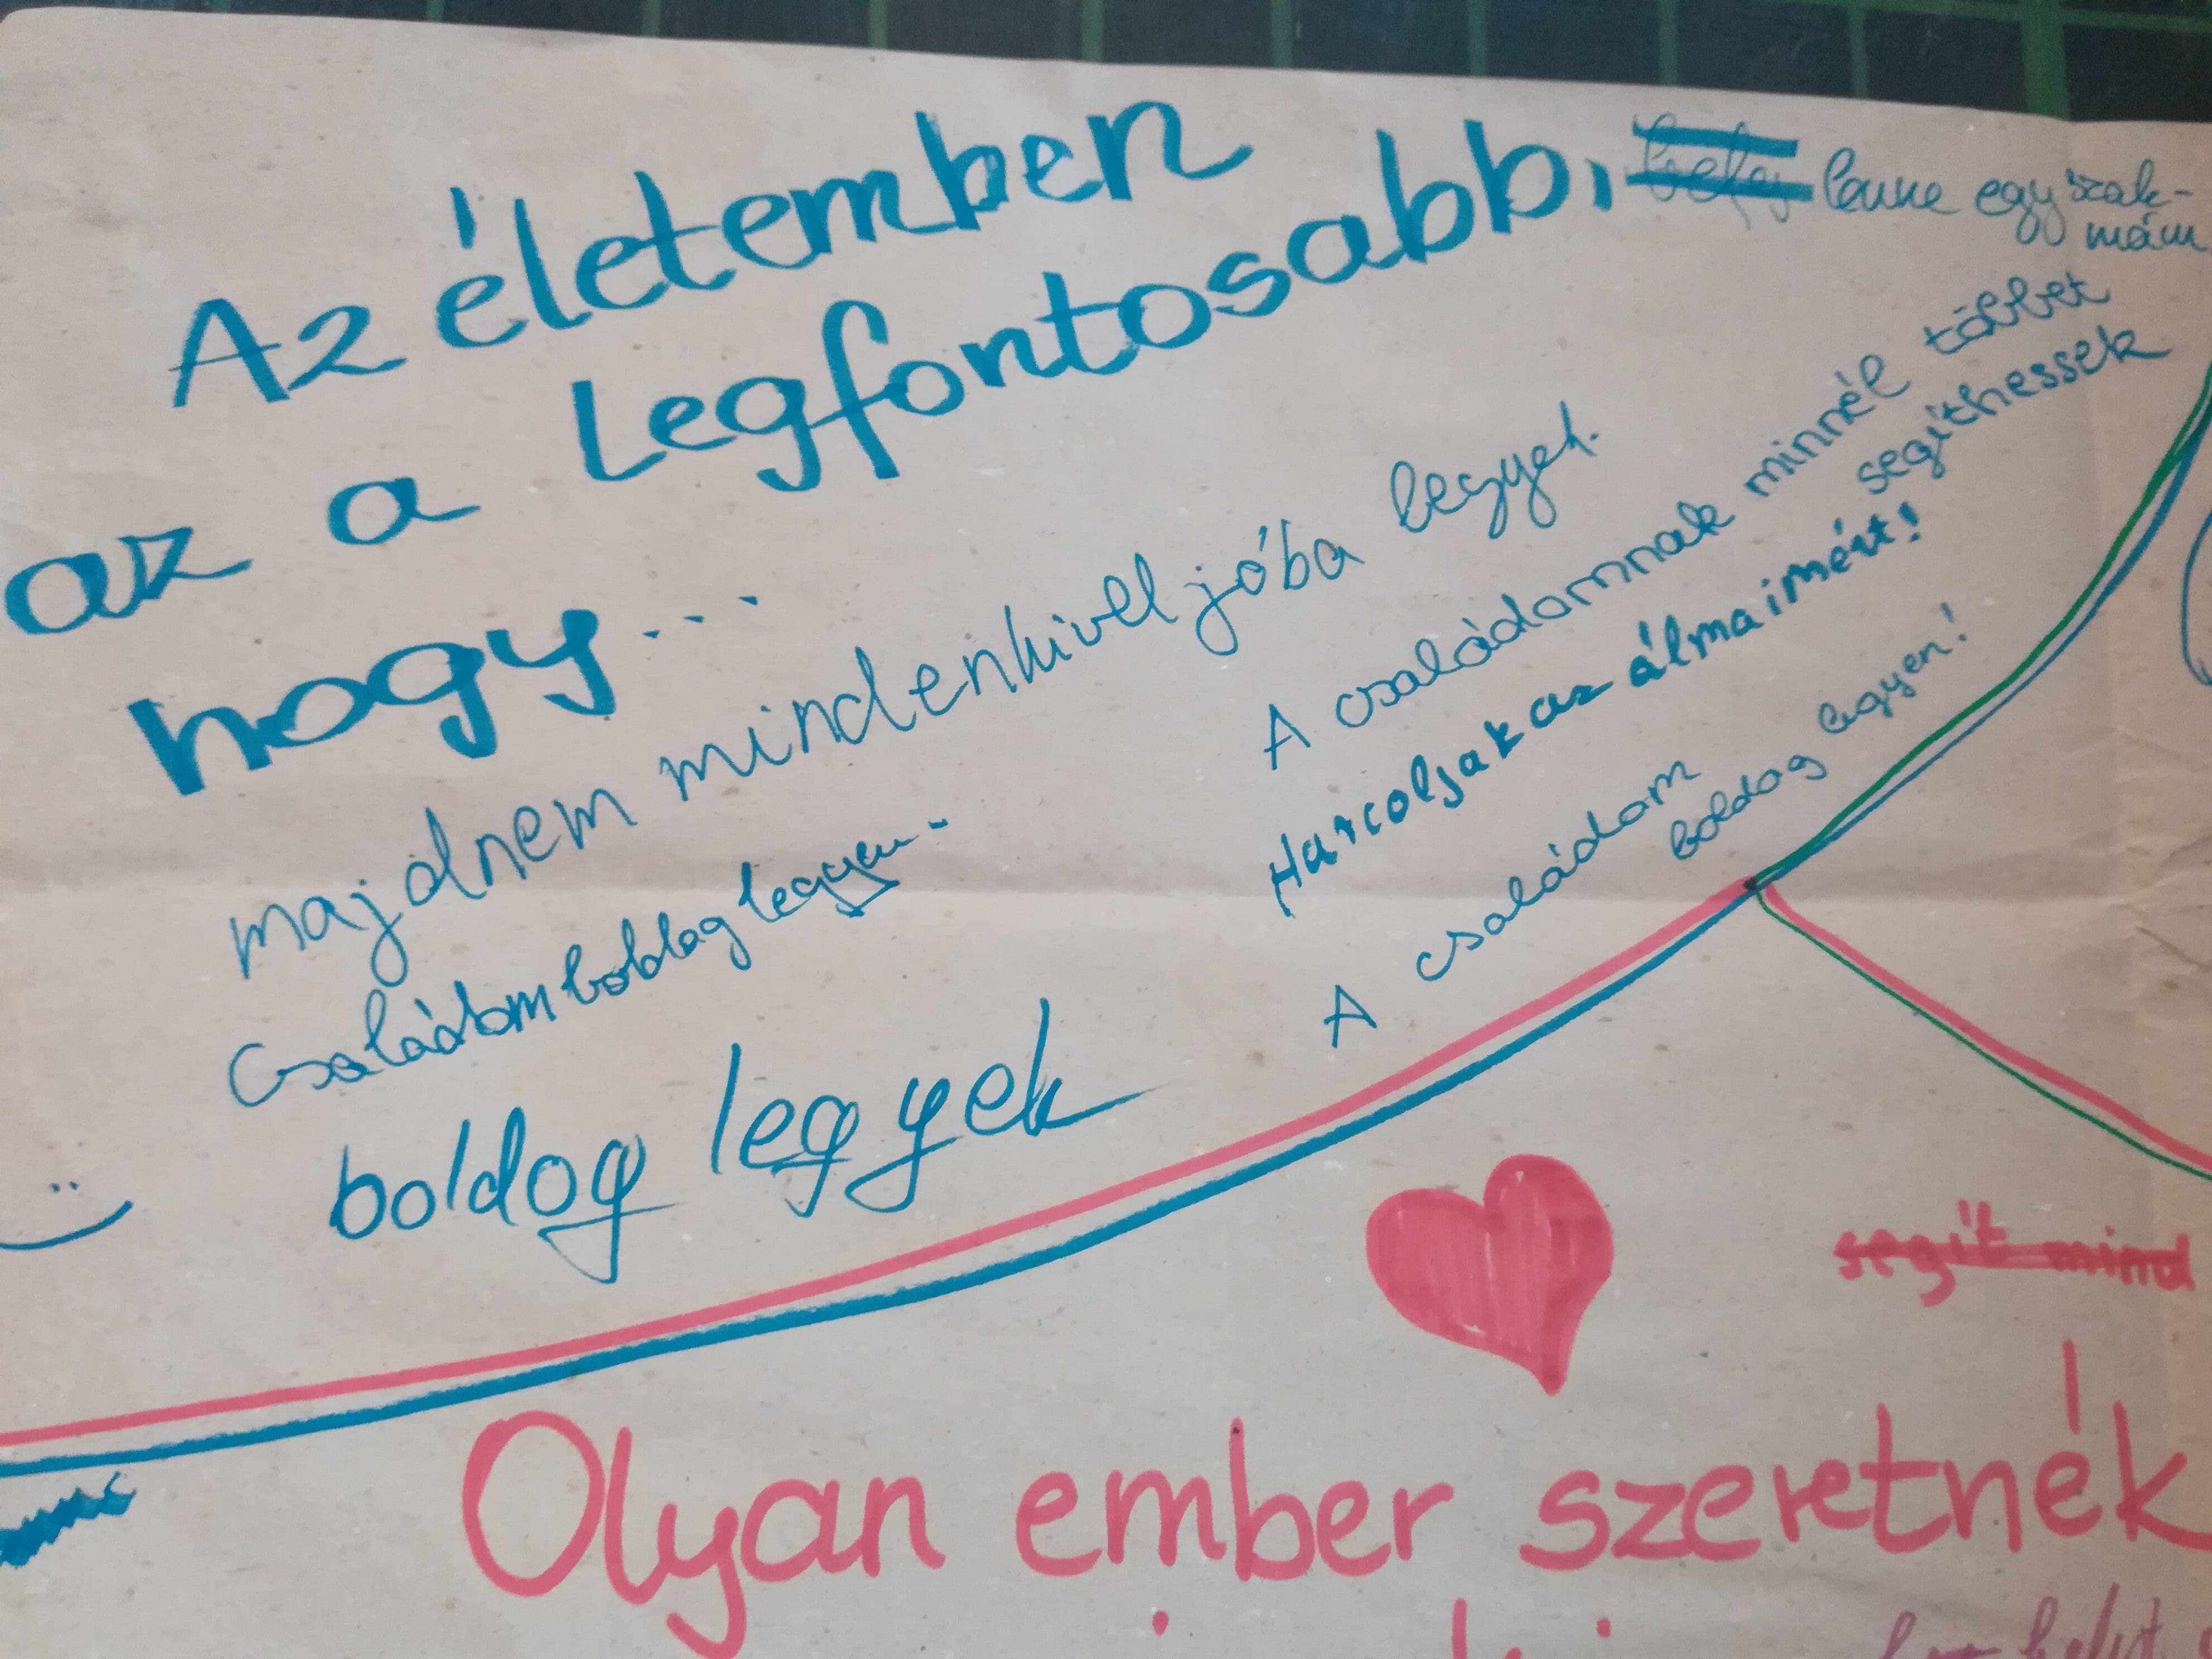 Az életemben
az a legfontosabb,
hogy...
lenne egy szak-
mám
majdnem mindenkivel jóba legyek.
A családomnak minnél többet
segíthessek
Harcoljak az álmaimért!
Családom boldog legyen.
A családom
boldog legyen!
boldog legyek
segít mind
Olyan ember szeretnék